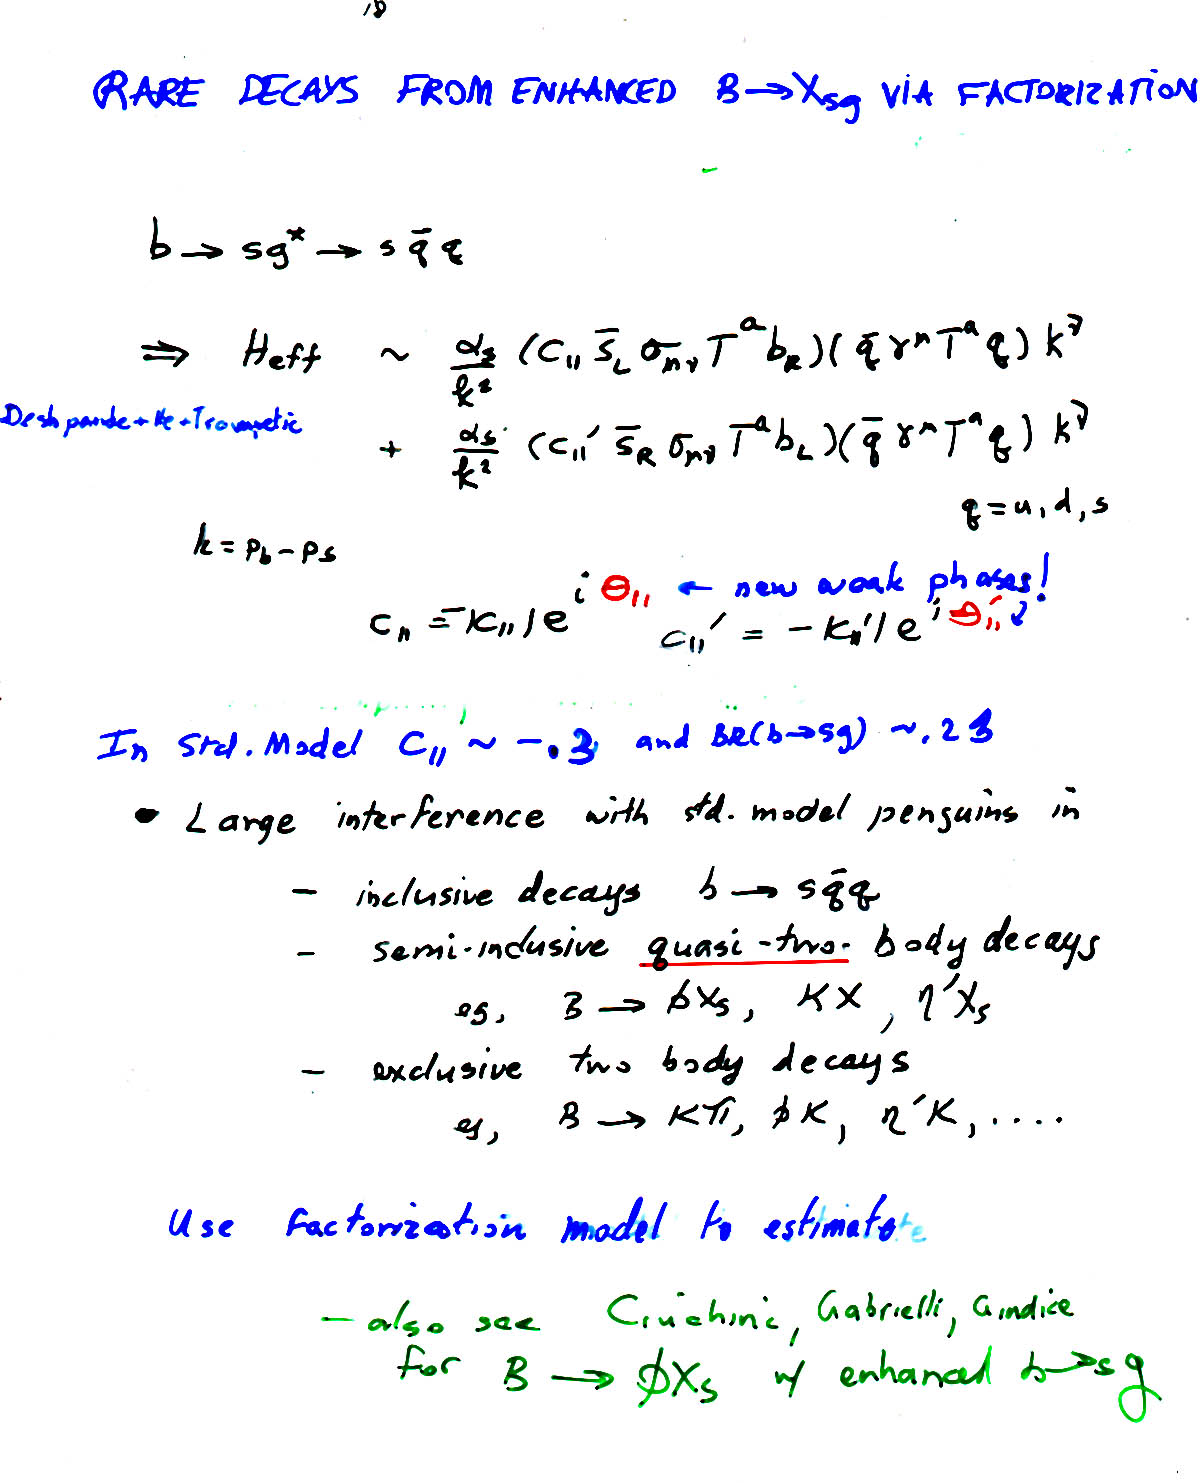 18
RARE DECAYS FROM ENHANCED B→Xsg VIA FACTORIZATION
b → sg* → s q̄ q
⇒ Heff ~ αs/k² (C11 s̄L σμν Tᵃ bR)(q̄ γᵘ Tᵃ q) kᵛ
Deshpande + He + Trampetic
+ αs/k² (C11′ s̄R σμν Tᵃ bL)(q̄ γᵘ Tᵃ q) kᵛ
q = u, d, s
k = pb - ps
C11 = -|C11| e^{iθ11} ← new weak phases!
C11′ = -|C11′| e^{iθ11′}
In Std. Model C11 ~ -.3 and BR(b→sg) ~ .2%
• Large interference with std. model penguins in
- inclusive decays b → s q̄ q
- semi-inclusive quasi-two-body decays
eg, B → φXs, KX, η′Xs
- exclusive two body decays
eg, B → Kπ, φK, η′K, ....
Use factorization model to estimate
- also see Ciuchini, Gabrielli, Giudice
for B → φXs w/ enhanced b→sg